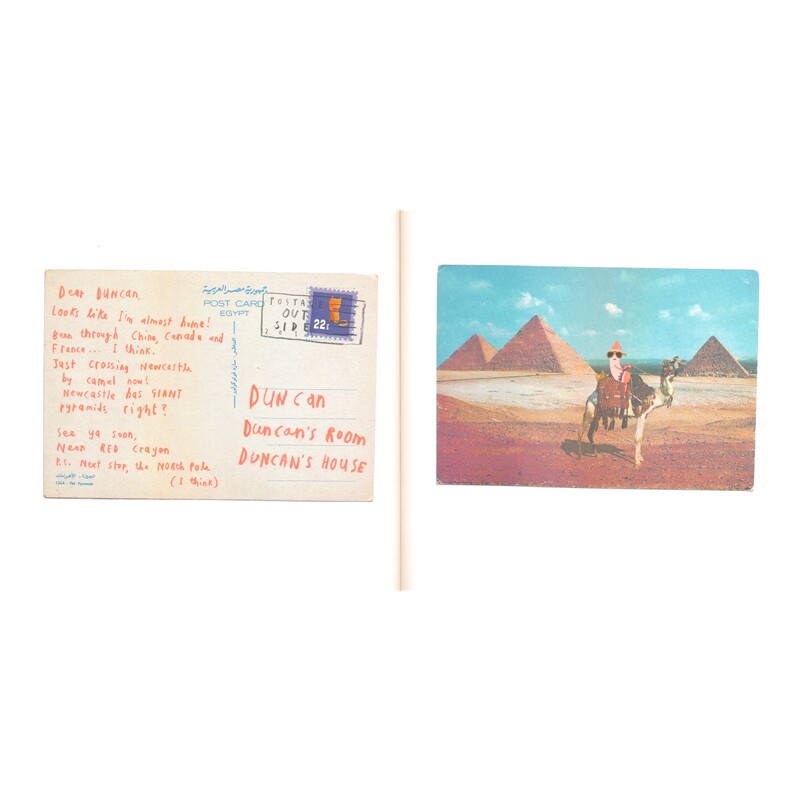 Dear DUNCAN,
Looks like I'm almost home!
Been through China, Canada and
France... I think.
Just crossing Newcastle
by camel now!
Newcastle has GIANT
pyramids, right?
See ya soon,
Neon RED Crayon
P.S. Next stop, the NORTH Pole
(I think)
جمهورية مصر العربية
POST CARD
EGYPT
POSTAGE
OUT
SIDE
22¢
DUNCAN
DUNCAN'S ROOM
DUNCAN'S HOUSE